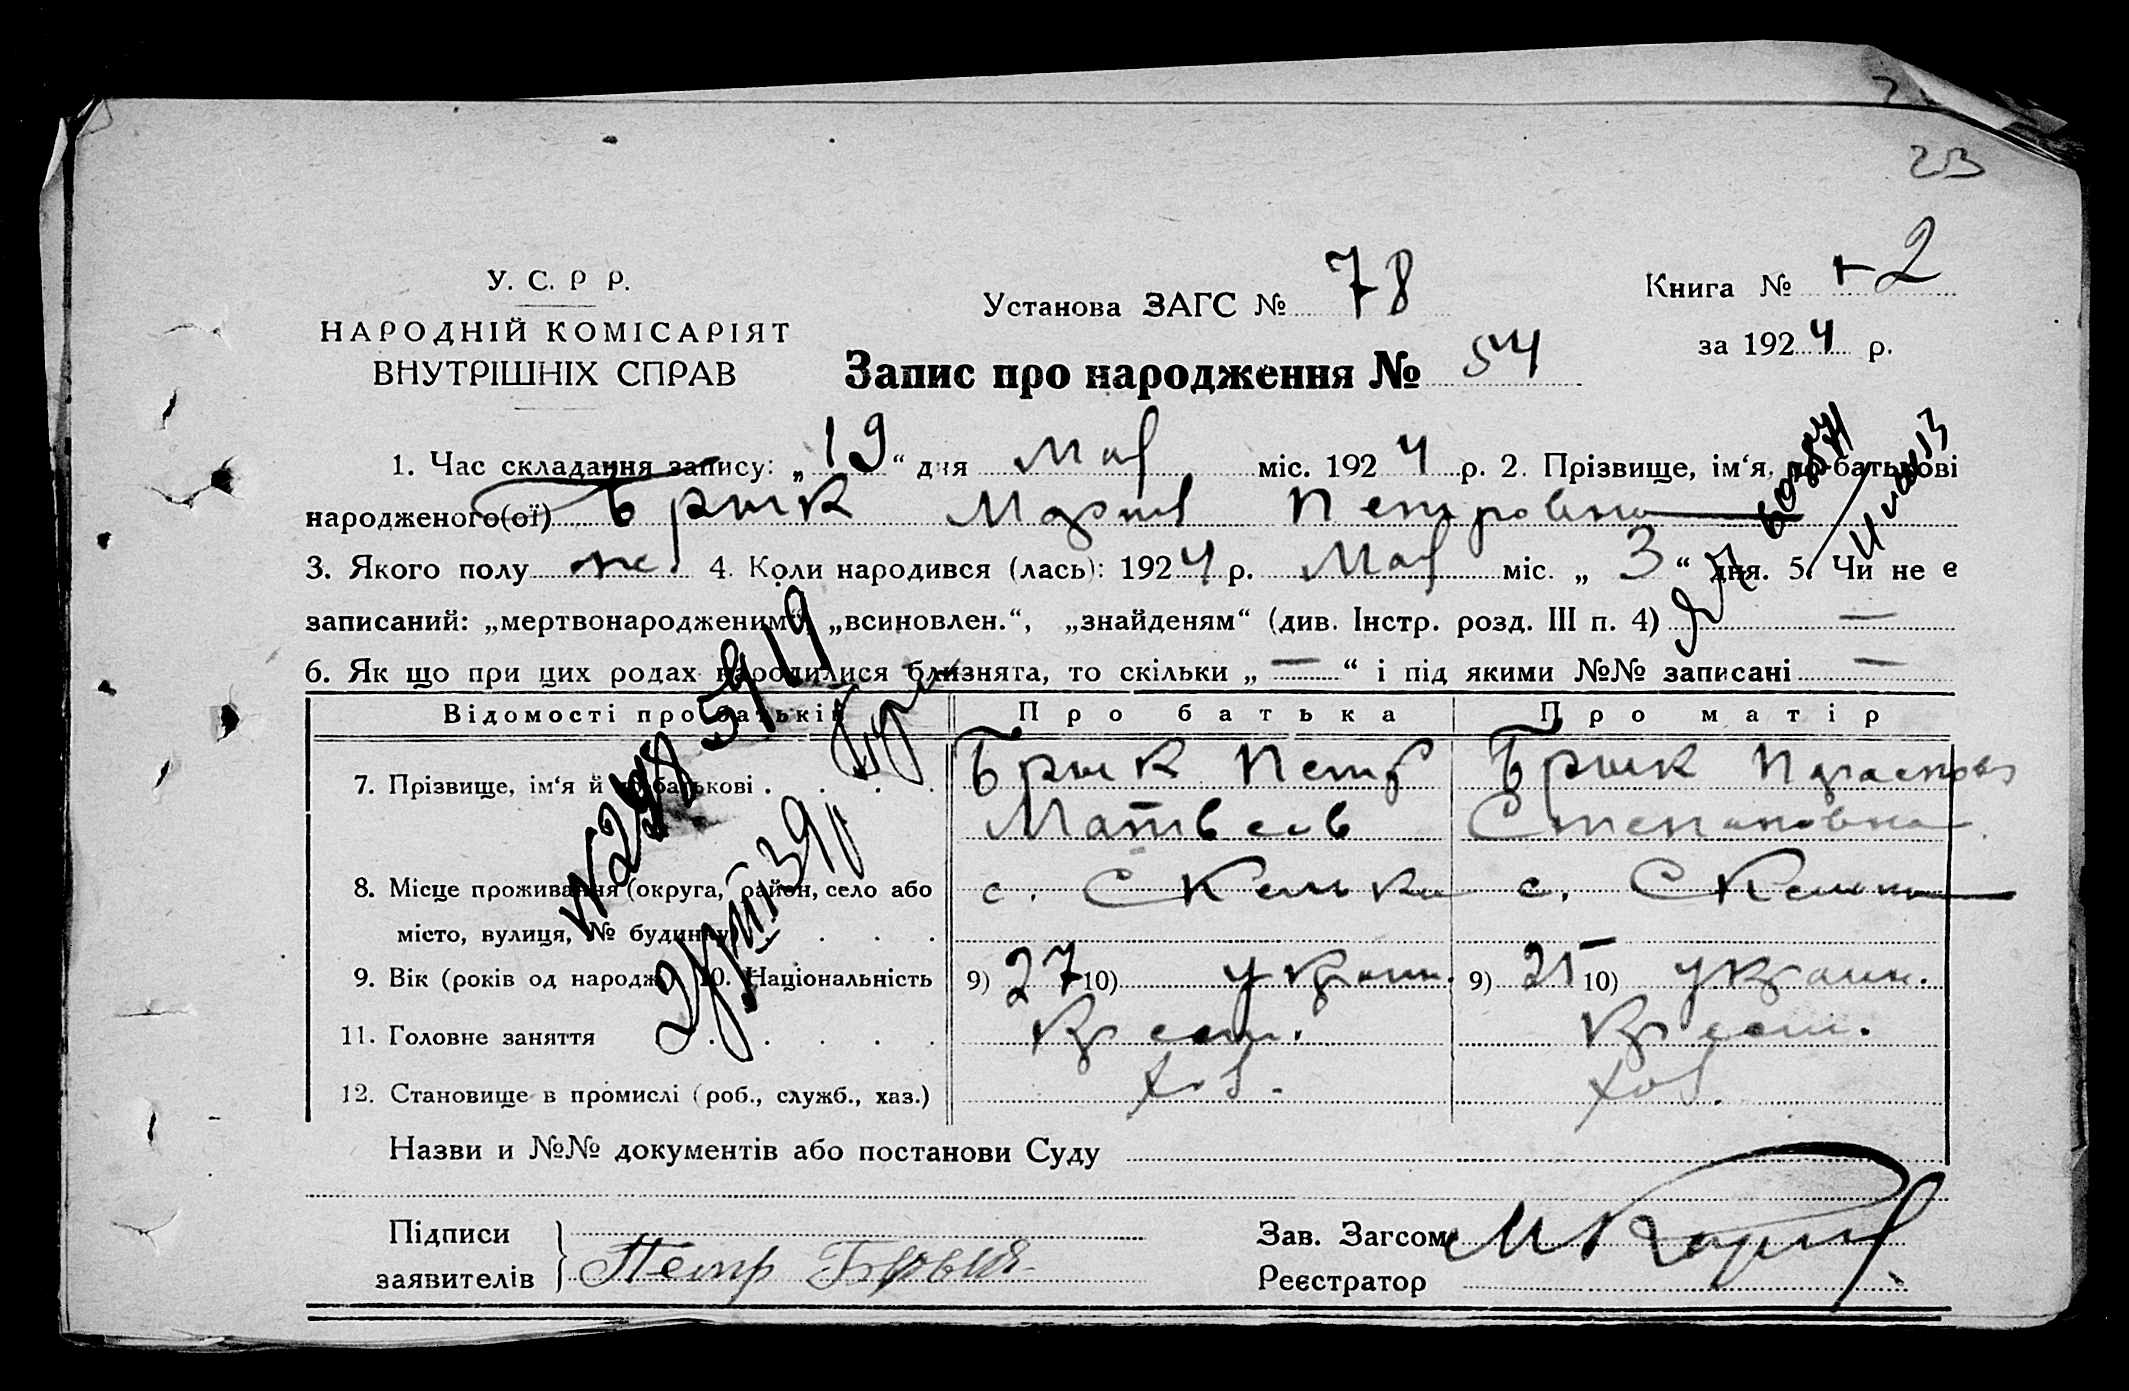 23
У. С. Р Р.
НАРОДНІЙ КОМІСАРІЯТ
ВНУТРІШНІХ СПРАВ
Установа ЗАГС № 78
Книга № 2
за 1924 р.
Запис про народження № 54
1. Час складання запису: „19“ дня Мая міс. 1924 р. 2. Прізвище, ім‘я, по-батькові
народженого(ої) Брык Мария Петровна
3. Якого полу ж. 4. Коли народився (лась): 1924 р. Мая міс. „3“ дня. 5. Чи не є
записаний: „мертвонародженим“, „всиновлен.“, „знайденям“ (див. Інстр. розд. III п. 4) —
6. Як що при цих родах народилися близнята, то скільки „—“ і під якими №№ записані —
Відомості про батьків Про батька Про матір
7. Прізвище, ім‘я й по батькові . . . . Брык Петр Брык Параскова
Матвеев Степановна
8. Місце проживання (округа, район, село або с. Скельки с. Скельки
місто, вулиця, № будинку) . . .
9. Вік (років од народж.) 10. Національність 9) 27 10) украин. 9) 25 10) украин.
11. Головне заняття . . . . . Крест. Крест.
12. Становище в промислі (роб., служб., хаз.) хоз. хоз.
Назви и №№ документів або постанови Суду
Підписи
заявителів } Петр Брык
Зав. Загсом
Реєстратор